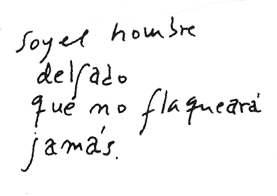 soy el hombre
delgado
que no flaqueará
jamás.